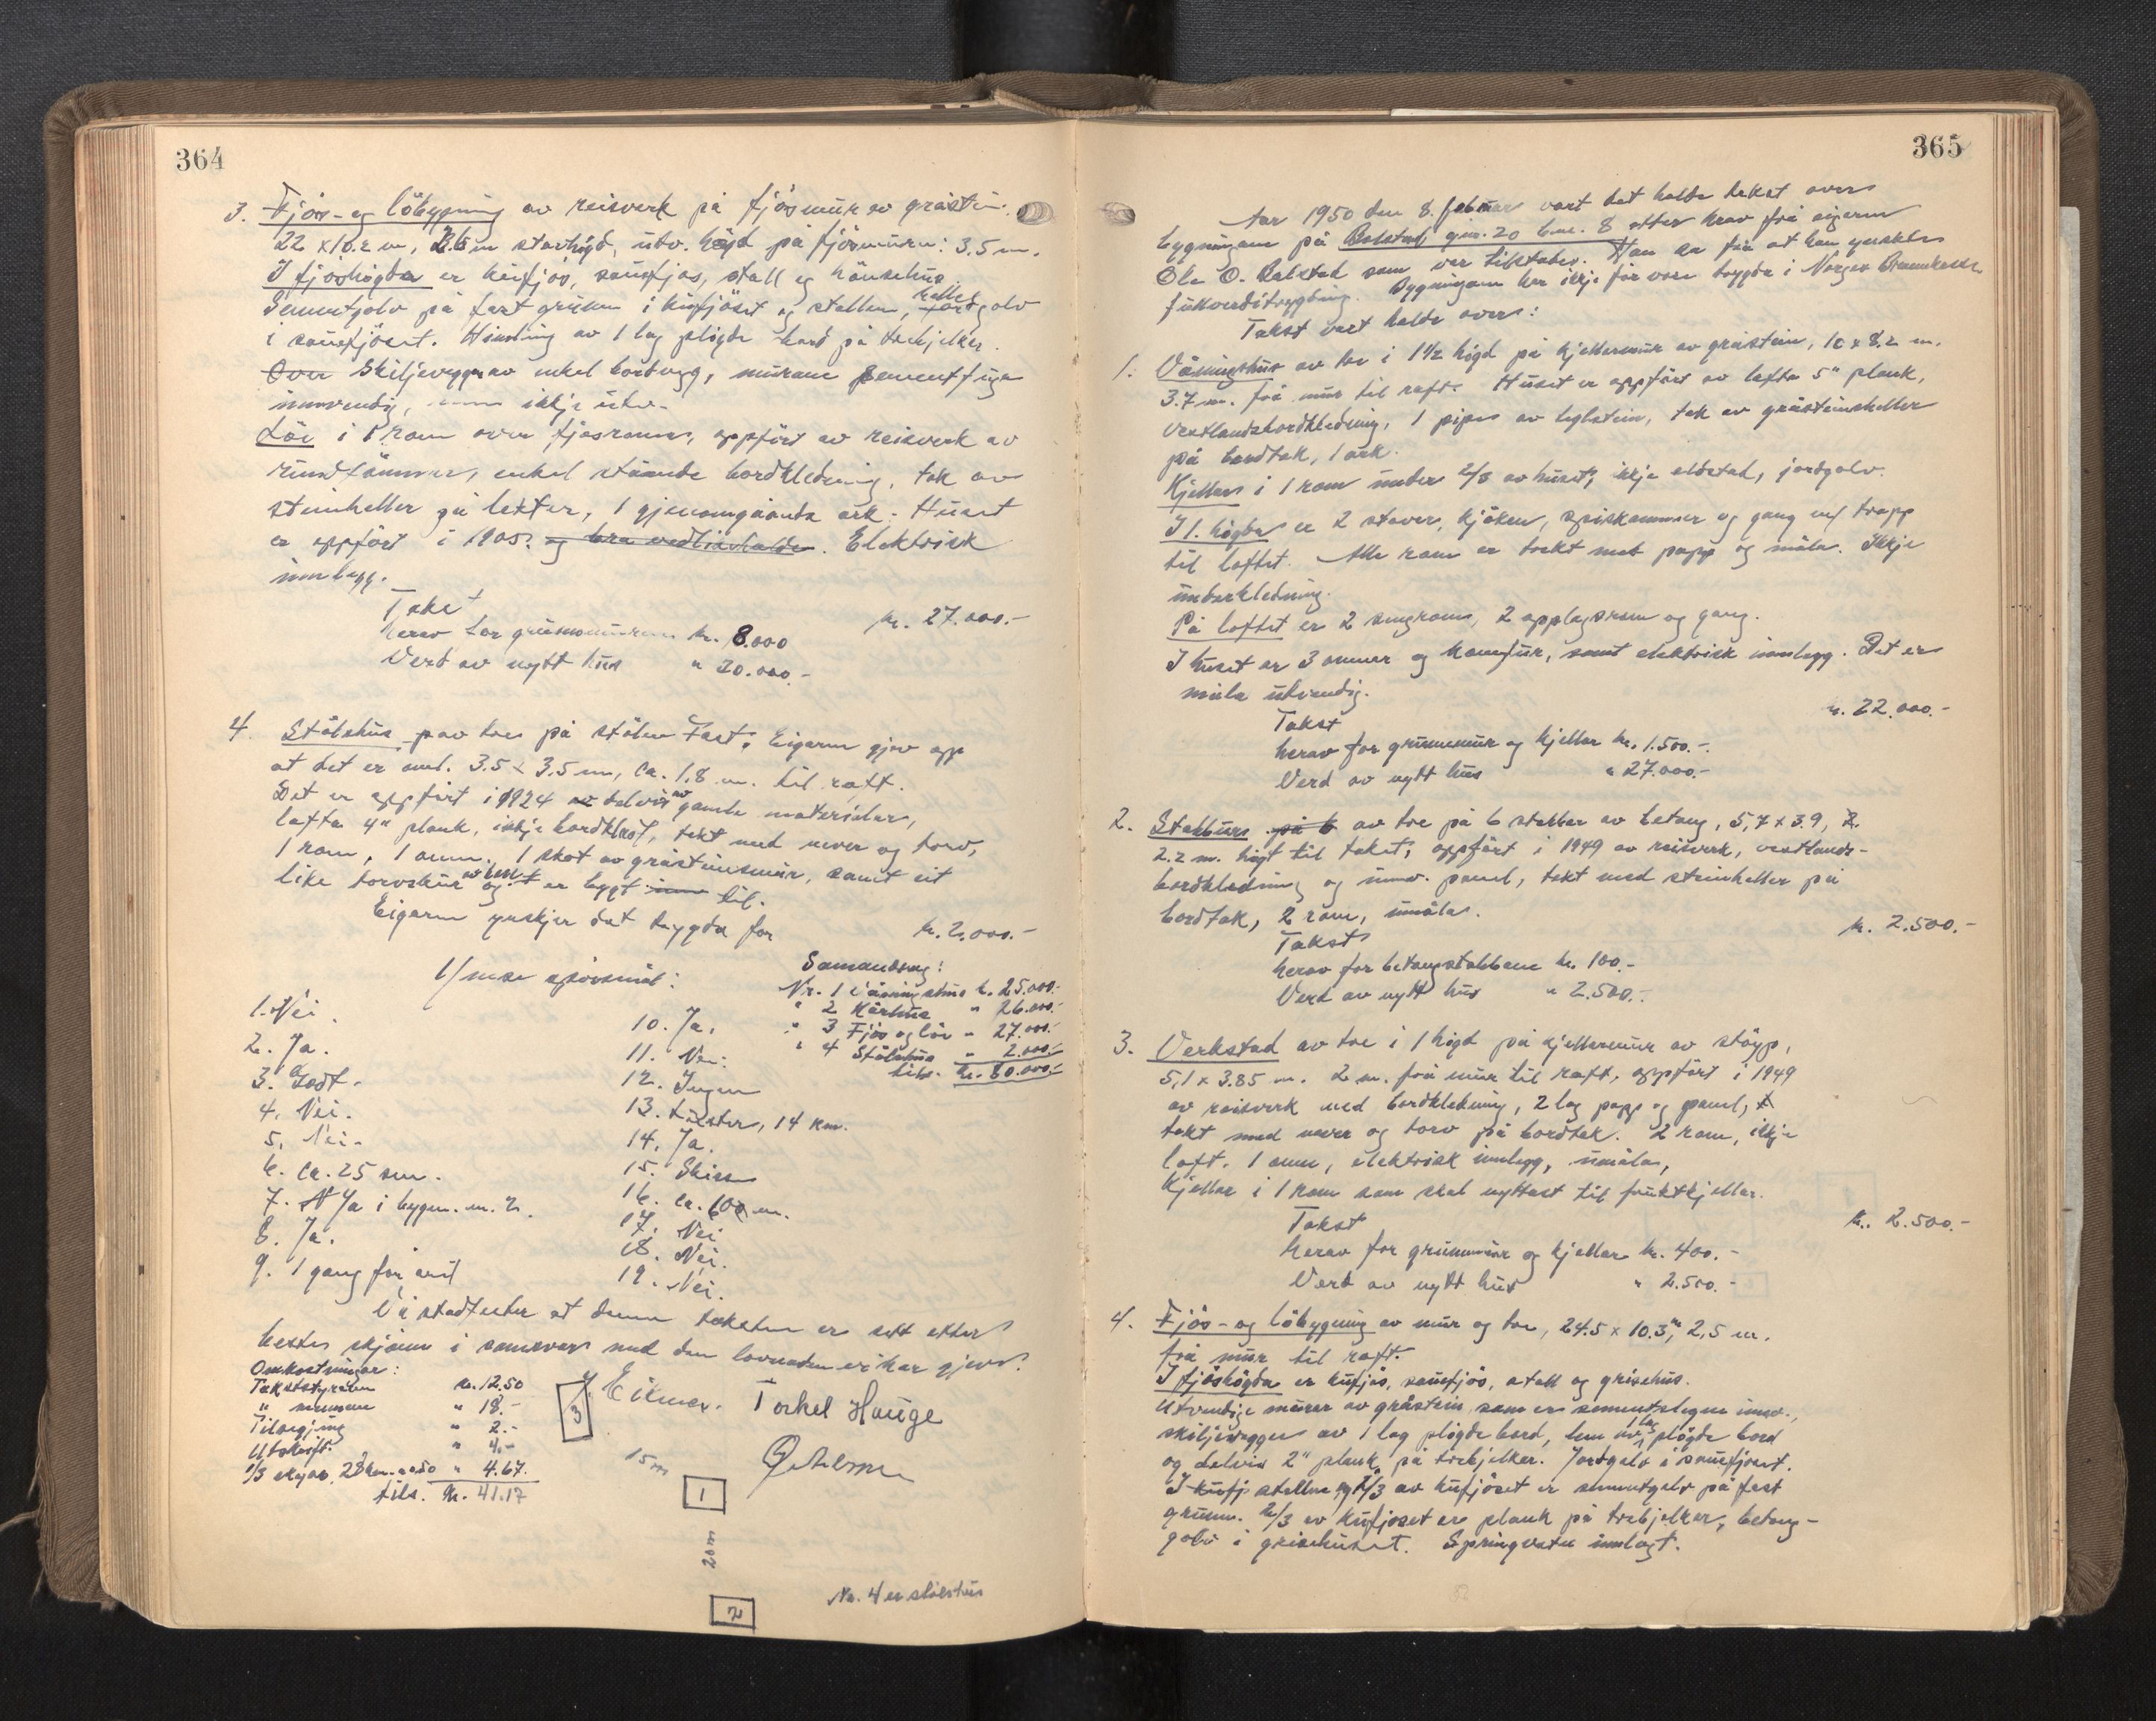 364
3. Fjøs- og löbygning av reisverk på fjösmur av gråstein.
22 x 10.2 m, 2.6 m stavhögd, utv. högd på fjösmuren: 3.5 m.
I fjöshögda er kufjös, sauefjös, stall og hönsehus.
Sementgolv på fast grunn i kufjöset og stallen, helle golv
i sauefjöset. Himling av 1 lag plögde bord på trebjelker.
Over Skiljevegger av enkel bordvegg, murane sementfuga
innvendig, men ikkje utv.
Löe i 1 rom over fjösrommet, oppfört av reisverk av
rundtömmer, enkel ståande bordkledning, tak av
steinheller på lekter, 1 gjenomgåande ark. Huset
er oppfört i 1905. og bra vedlikehalde. Elektrisk
innlegg.
Takst kr. 27.000.-
herav for grunnmuren kr. 8.000
Verd av nytt hus " 30.000.-
4. Stölshus av tre på stölen Fast. Eigaren gjev opp
at det er oml. 3.5 x 3.5 m, ca. 1.8 m. til raft.
Det er oppfört i 1924 av delvis av gamle materialer,
lafta 4" plank, ikkje bordkledt, tekt med never og torv,
1 rom, 1 omn. 1 skot av gråsteinsmur, samt eit
lite torvskur av bord er bygt inn til.
Eigaren ynskjer det trygda for kr. 2.000.-
Ymse spörsmål:
Samandrag:
Nr. 1 Våningshus kr. 25.000.-
" 2 Kårhus " 26.000.-
" 3 Fjös og löe " 27.000.-
" 4 Stölshus " 2.000.-
tils. kr. 80.000.-
1. Nei.
2. Ja.
3. Godt.
4. Nei.
5. Nei.
6. ca. 25 cm.
7. N Ja i bygn. nr. 2.
8. Ja.
9. 1 gang for året
10. Ja.
11. Nei.
12. Ingen
13. Luster, 14 km.
14. Ja.
15. Skisse
16. ca. 600 m.
17. Nei
18. Nei.
19. Nei.
Vi stadfester at denne taksten er sett etter
beste skjönn i samsvar med den lovnaden vi har gjeve.
Omkostningar:
Takststyraren kr. 12.50
" mennene " 18.-
Tilsegjing " 2.-
Utskrift " 4.-
1/3 skyss 28 km. a 50 " 4.67.
tils. kr. 41.17
Torkel Hauge
3
15 m
1
20 m
2
Nr. 4 er stölshus
365
Aar 1950 den 8. februar vart det halde takst over
bygningane på Bolstad gnr. 20 bnr. 8 etter krav frå eigaren
Ole O. Bolstad som var tilstades. Han sa frå at han ynskte
fullverditrygding. Bygningane har ikkje för vore trygda i Norges Brannkasse.
Takst vart halde over:
1. Våningshus av tre i 1 1/2 högd på kjellermur av gråstein, 10 x 8.2 m.
3.7 m. frå mur til raft. Huset er oppfört av lafta 5" plank,
vestlandsbordkledning, 1 pipe av teglstein, tak av gråsteinsheller
på bordtak, 1 ark.
Kjellar i 1 rom under 2/3 av huset, ikkje eldstad, jordgolv.
I 1. högda er 2 stover, kjöken, spiskammer og gang m/ trapp
til loftet. Alle rom er trekt med papp og måla. Ikkje
underkledning.
På loftet er 2 sengrom, 2 opplagsrom og gang.
I huset er 3 omner og komfur, samt elektrisk innlegg. Det er
måla utvendig.
Takst kr. 22.000.-
herav for grunnmur og kjellar kr. 1.500.-
Verd av nytt hus " 27.000.-
2. Stabburs på 6 av tre på 6 stabber av betong, 5,7 x 3.9, 2.
2.2 m. högt til taket, oppfört i 1949 av reisverk, vestlands-
bordkledning og innv. panel, tekt med steinheller på
bordtak, 2 rom, umåla.
Takst kr. 2.500.-
herav for betongstabbane kr. 100.-
Verd av nytt hus " 2.500.-
3. Verkstad av tre i 1 högd på kjellermur av stöyp,
5,1 x 3.85 m. 2 m. frå mur til raft, oppfört i 1949
av reisverk med bordkledning, 2 lag papp og panel, t
tekt med never og torv på bordtak. 2 rom, ikkje
loft. 1 omn, elektrisk innlegg, umåla,
Kjellar i 1 rom som skal nyttast til fruktkjellar.
Takst kr. 2.500.-
herav for grunnmur og kjellar kr. 400.-
Verd av nytt hus " 2.500.-
4. Fjös- og löbygning av mur og tre, 24.5 x 10.3 m, 2,5 m.
frå mur til raft.
I fjöshögda er kufjös, sauefjös, stall og grisehus.
Utvendige murar av gråstein som er sementslegne innv.,
skiljevegger av 1 lag plögde bord, lem av 1 lag plögde bord
og delvis 2" plank på trebjelker. Jordgolv i sauefjöset.
I kufj stallen og 1/3 av kufjöset er sementgolv på fast
grunn. 2/3 av kufjöset er plank på trebjelker, betong-
golv i grisehuset. Springvatn innlagt.